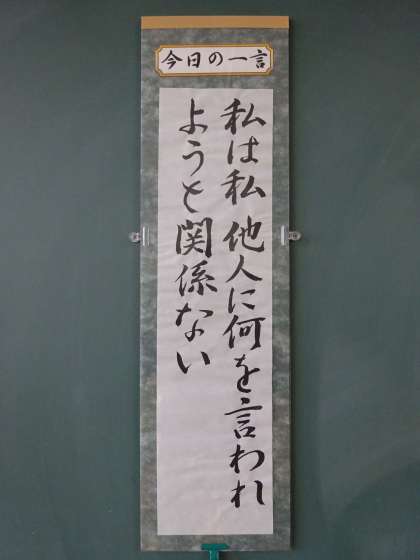 今日の一言
私は私 他人に何を言われ
ようと関係ない